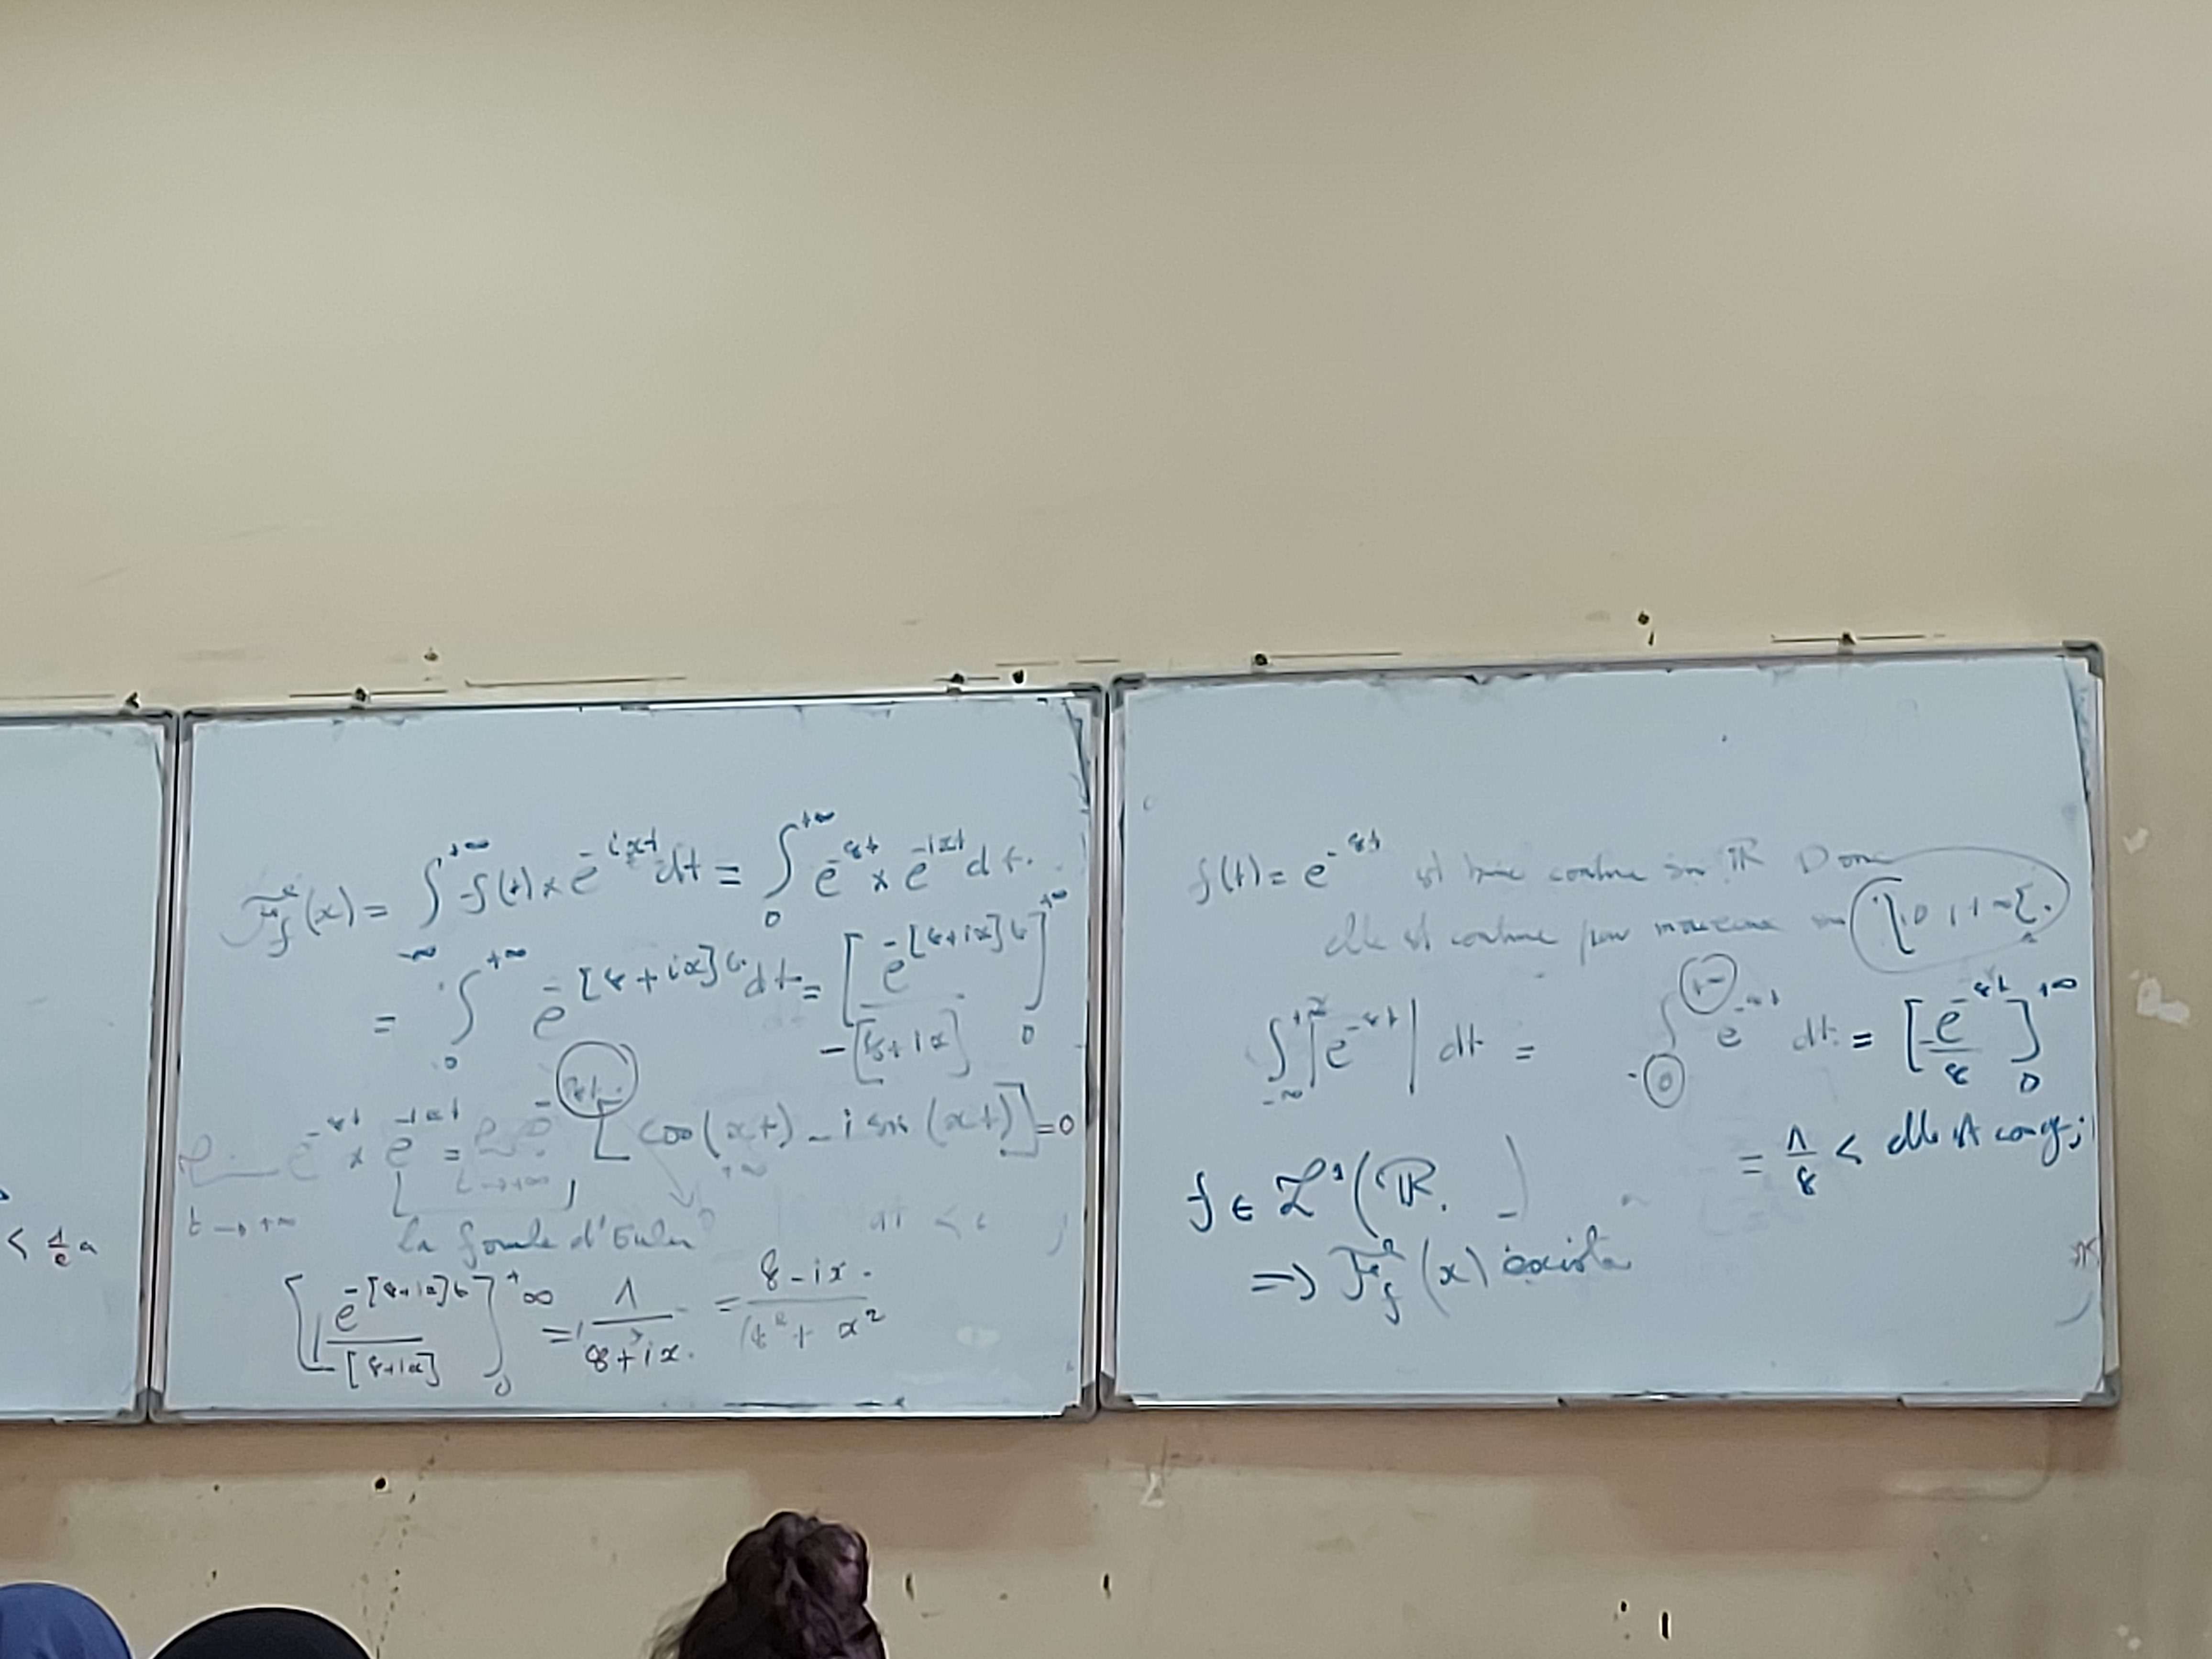 < 1/e a
F_f(x) = ∫_{-∞}^{+∞} f(t) × e^{-ixt} dt = ∫_0^{+∞} e^{-8t} × e^{-ixt} dt.
= ∫_0^{+∞} e^{-[8+ix]t} dt = [e^{-[8+ix]t} / -[8+ix]]_0^{+∞}
t→+∞ e^{-8t} × e^{-ixt} = t→+∞ e^{-8t} [cos(xt) - i sin(xt)] = 0
la formule d'Euler
[e^{-[8+ix]t} / -[8+ix]]_0^{+∞} = 1 / (8+ix) = (8-ix) / (8² + x²)
f(t) = e^{-8t} est continue sur ℝ Donc
elle est continue par morceaux sur [0, +∞[.
∫_{-∞}^{+∞} |e^{-8t}| dt = ∫_0^{+∞} e^{-8t} dt = [-e^{-8t} / 8]_0^{+∞}
= 1/8 < elle est
f ∈ L¹(ℝ )
=> F_f(x) existe